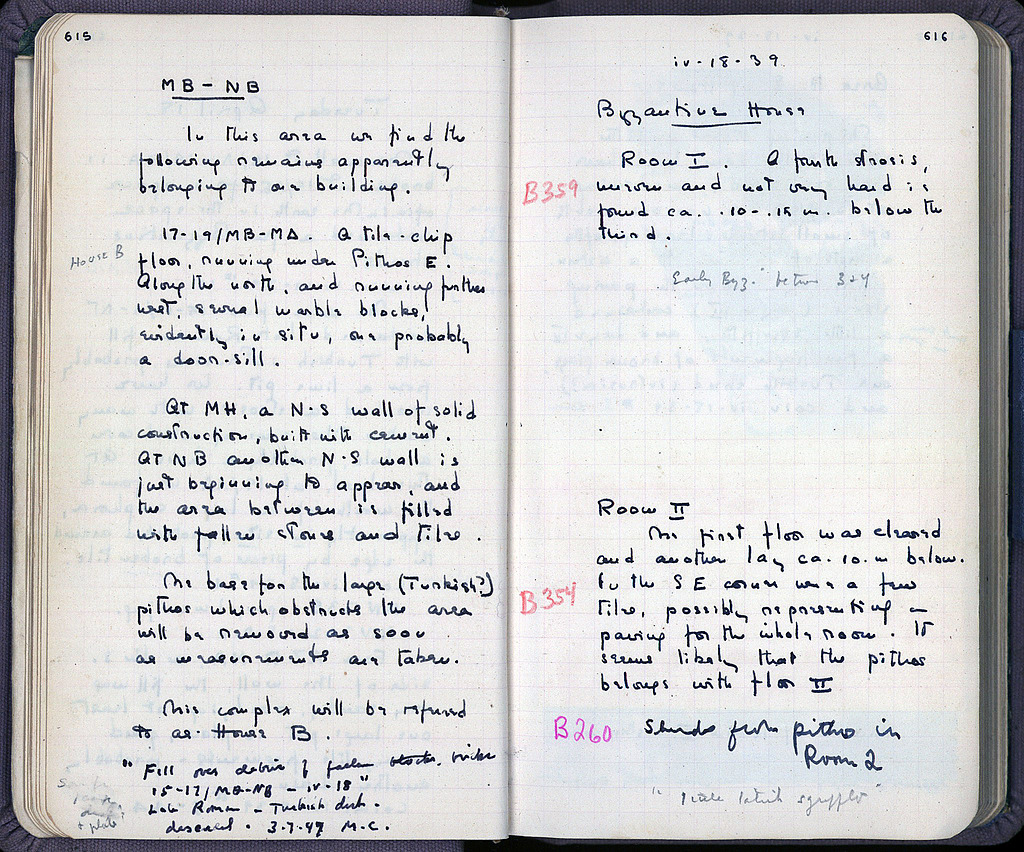 615
MB – NB
In this area we find the
following remains apparently
belonging to one building.
17-19/MB-MΔ. A tile-chip
House B
floor, running under Pithos E.
Along the north, and running further
west, several marble blocks,
evidently in situ, one probably
a door-sill.
At MH, a N-S wall of solid
construction, built with cement.
At NB another N-S wall is
just beginning to appear, and
the area between is filled
with fallen stones and tiles.
The base for the large (Turkish?)
pithos which obstructs the area
will be removed as soon
as measurements are taken.
This complex will be referred
to as House B.
"Fill over debris of fallen bricks
15-17/MB-NB – iv-18"
Late Roman – Turkish
discarded. 3.7.47 M.C.
+ plate
616
iv-18-39
Byzantine House
Room I. A fourth strosis,
B359
uneven and not very hard is
found ca. .10-.15 m. below the
third.
"Early Byz." between 3-4
Room II
The first floor was cleared
and another lay ca. 10. m below.
B354
In the SE corner were a few
tiles, possibly representing a
paving for the whole room. It
seems likely that the pithos
belongs with floor II
B260
Sherds from pithos in
Room 2